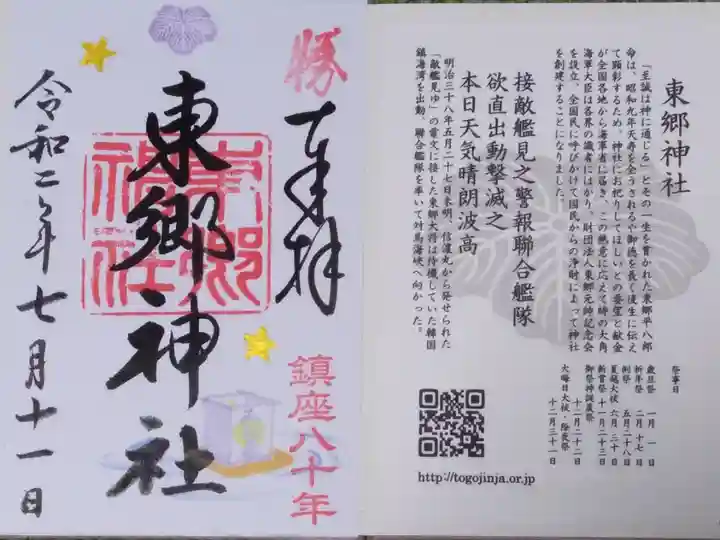 勝
奉拝
東郷神社
東郷神社
鎮座八十年
令和二年七月十一日
東郷神社
「至誠は神に通じる」とその一生を貫かれた東郷平八郎
命は、昭和九年天寿を全うされるや御徳を長く後生に伝え
て顕彰するため、神社にお祀りしてほしいとの要望と献金
が全国各地から海軍省に届き、この熱意に応えて時の大角
海軍大臣は各界の識者にはかり、財団法人東郷元帥記念会
を設立、全国民に呼びかけて国民からの浄財によって神社
を創建することになりました。
接敵艦見之警報聯合艦隊
欲直出動撃滅之
本日天気晴朗波高
明治三十八年五月二十七日未明、信濃丸から発せられた
「敵艦見ゆ」の電文に接した東郷大将は待機していた韓国
鎮海湾を出動、聯合艦隊を率いて対馬海峡へ向かった。
祭事日
歳旦祭 一月 一日
祈年祭 二月 十七日
例祭 五月二十八日
夏越大祓 六月 三十日
新嘗祭 十一月二十三日
御祭神誕辰祭
十二月二十二日
大晦日大祓・除夜祭
十二月三十一日
http://togojinja.or.jp